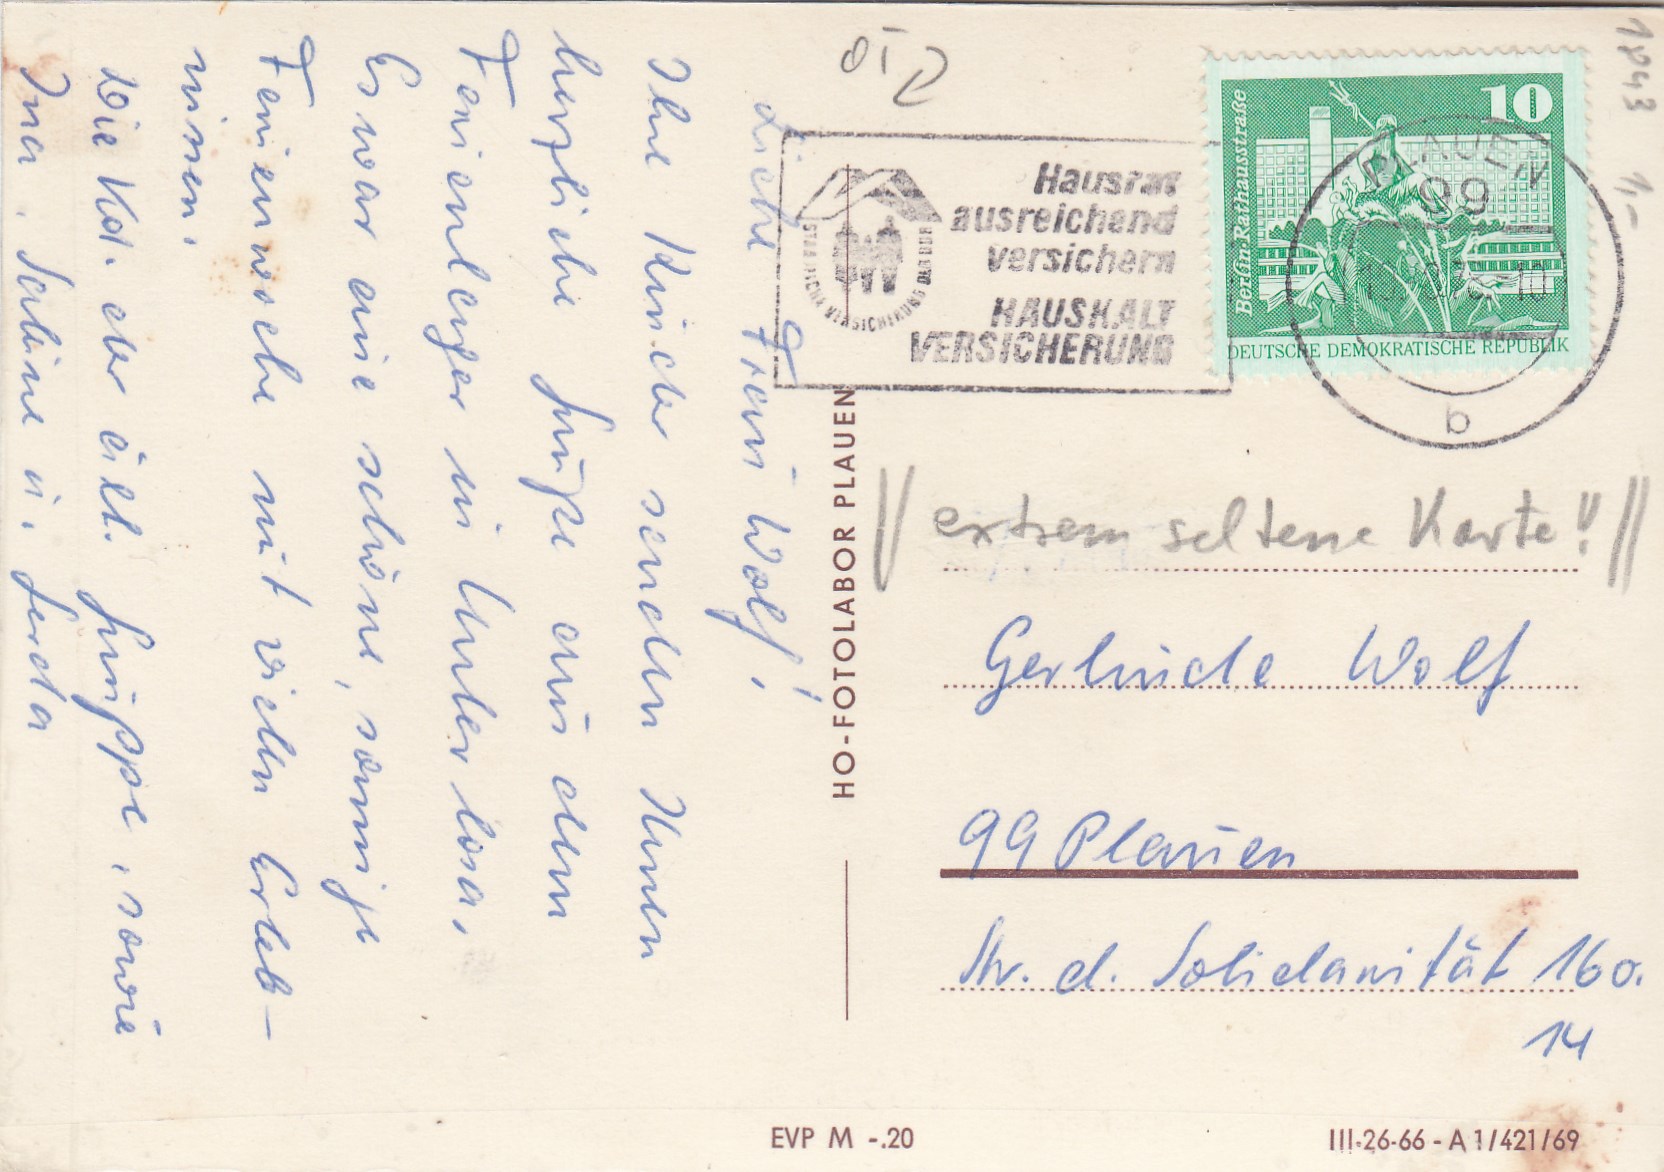 Liebe Frau Wolf!
Ihre Kinder senden Ihnen
herzliche Grüße aus dem
Ferienlager in Unterlosa.
Es war eine schöne, sonnige
Ferienwoche mit vielen Erleb-
nissen.
Die Kd. der ält. Gruppe, sowie
Ina, Sabine u. Gerda
HO-FOTOLABOR PLAUEN
Hausrat
ausreichend
versichern
HAUSHALT
VERSICHERUNG
STAATLICHE VERSICHERUNG DER DDR
10
Berlin-Rathausstraße
DEUTSCHE DEMOKRATISCHE REPUBLIK
PLAUEN
99
b
1,-
extrem seltene Karte!!
Gerlinde Wolf
99 Plauen
Str. d. Solidarität 160.
14
EVP M -.20
III-26-66 - A 1/421/69